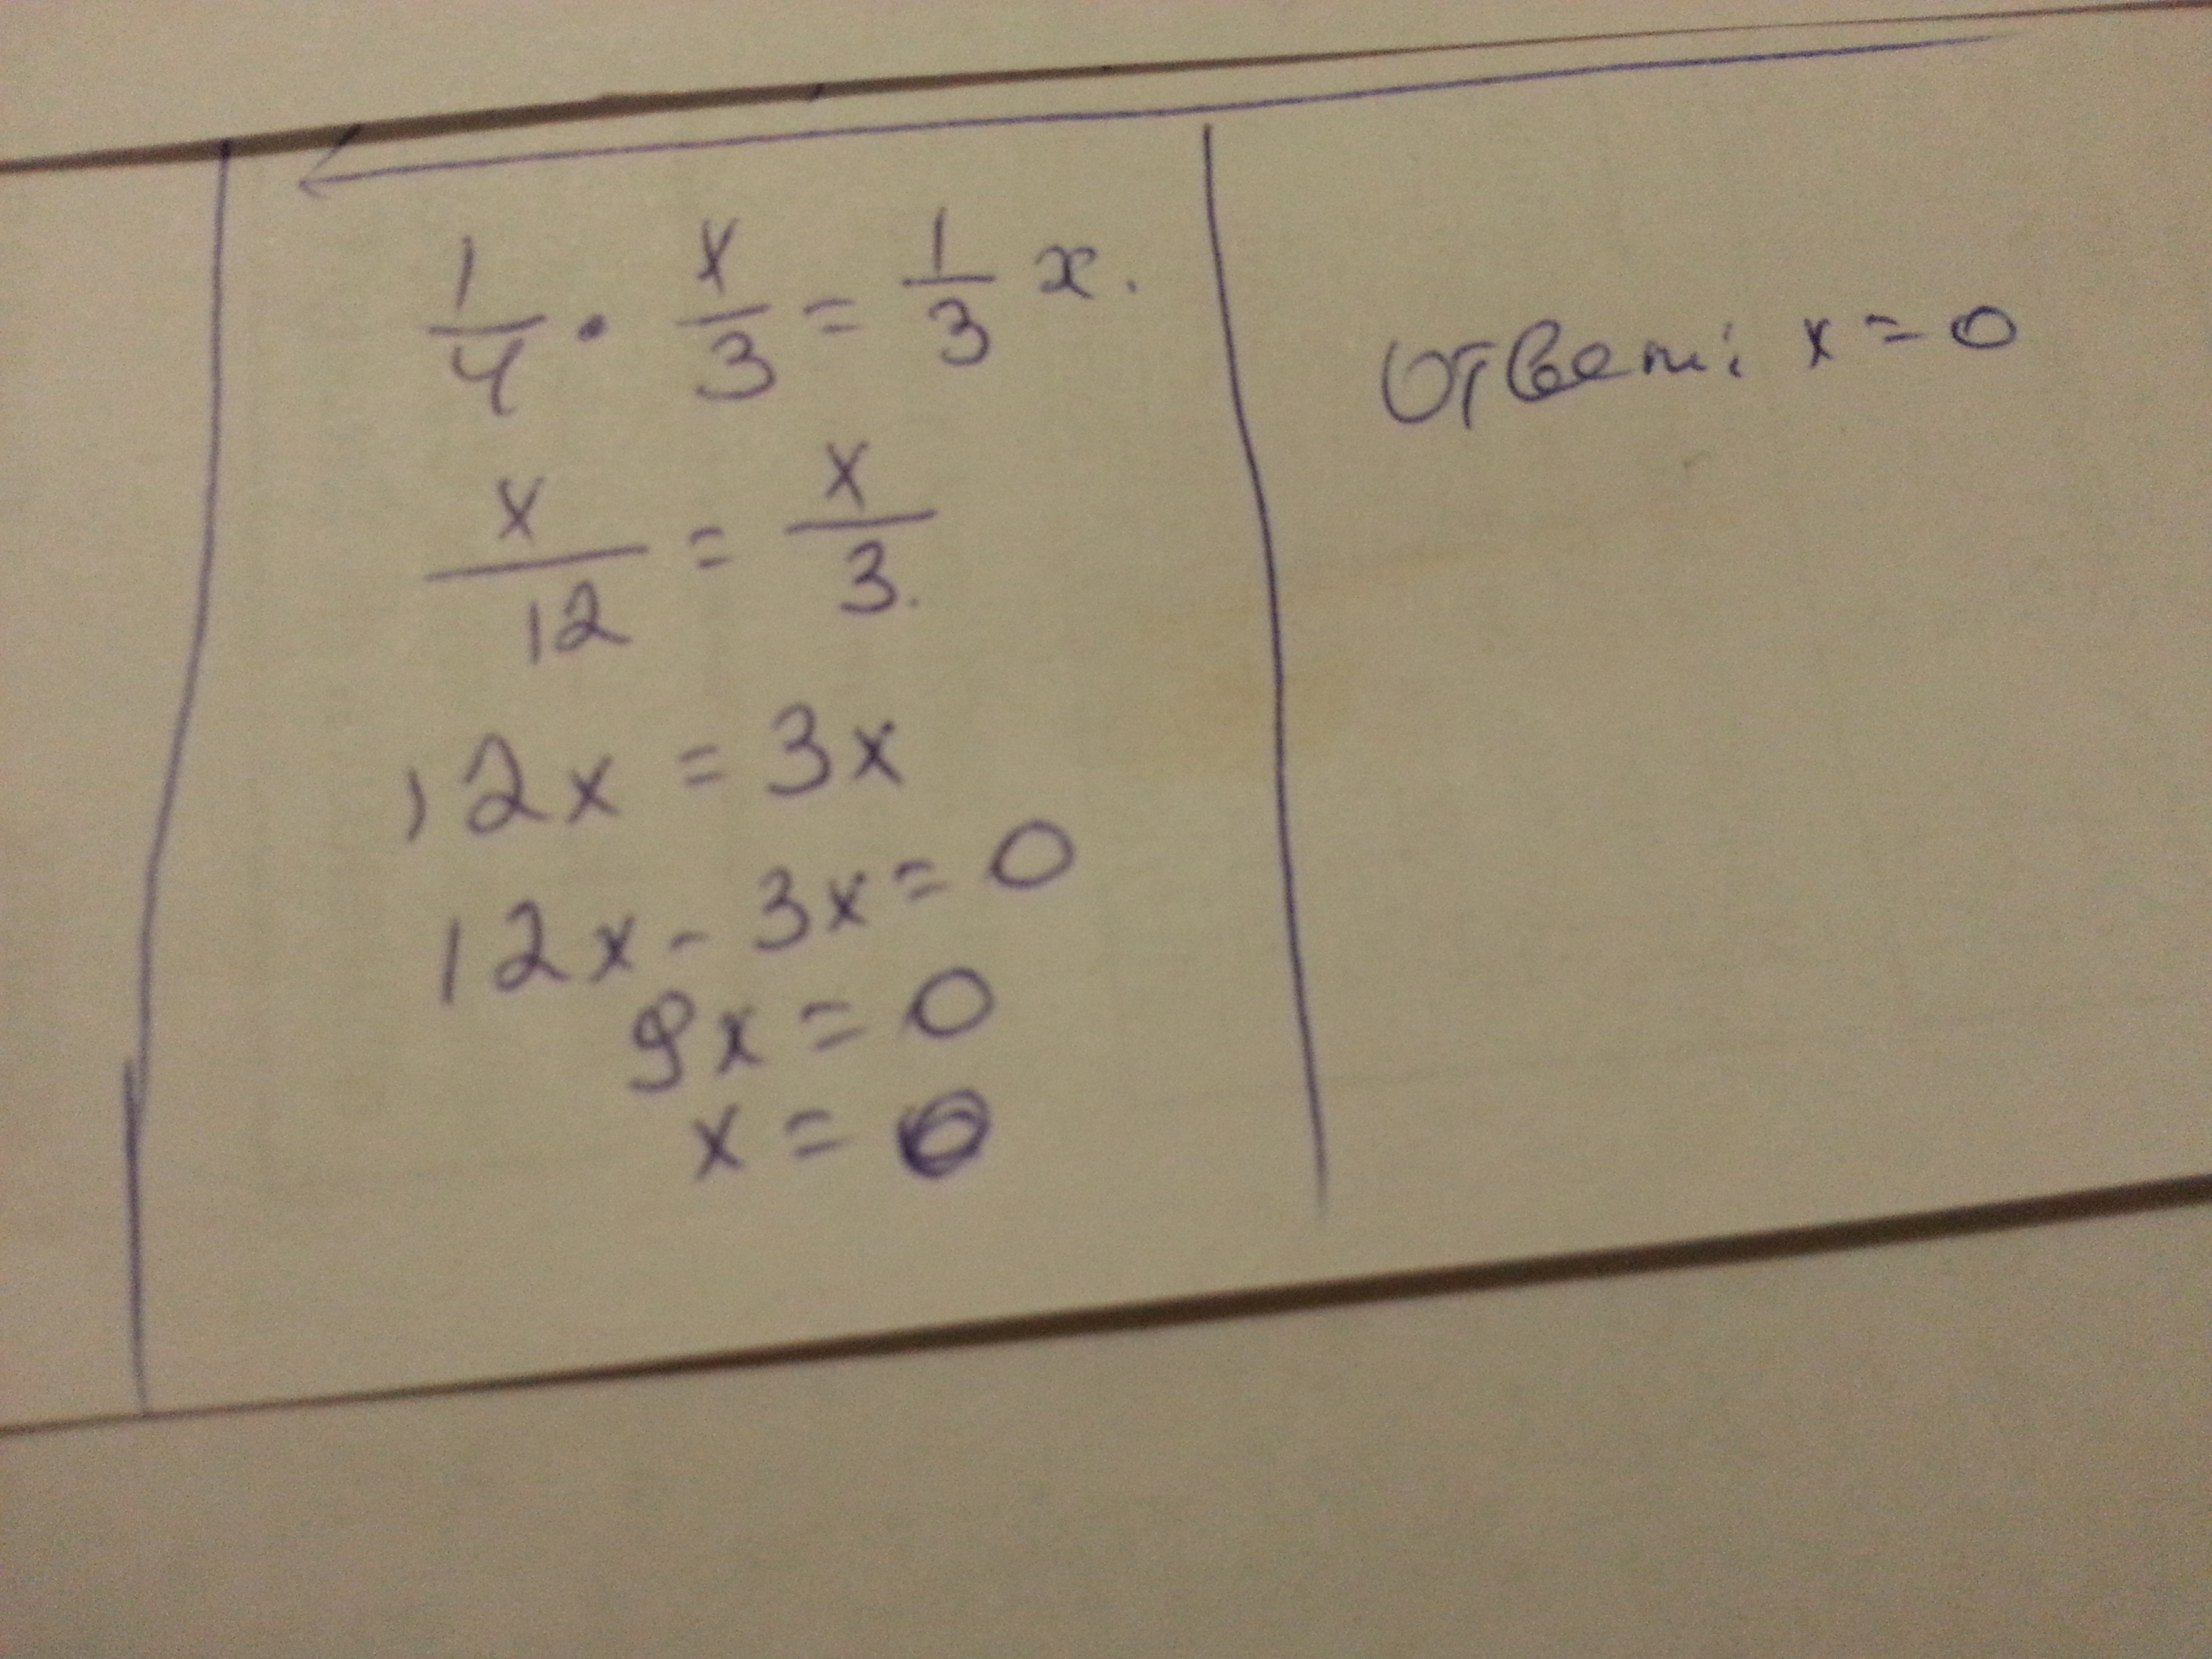 1/4 · x/3 = 1/3 x.
x/12 = x/3.
12x = 3x
12x - 3x = 0
9x = 0
x = 0
Ответ: x = 0